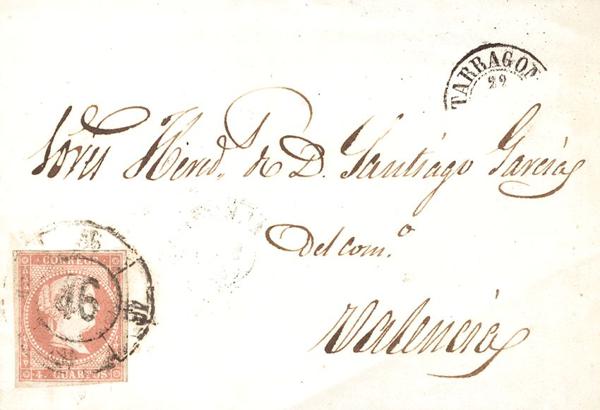 TARRAGON
22
Sores Hered. de D. Santiago García
Del com.º
Valencia
46
CORREOS
4 CUARTOS